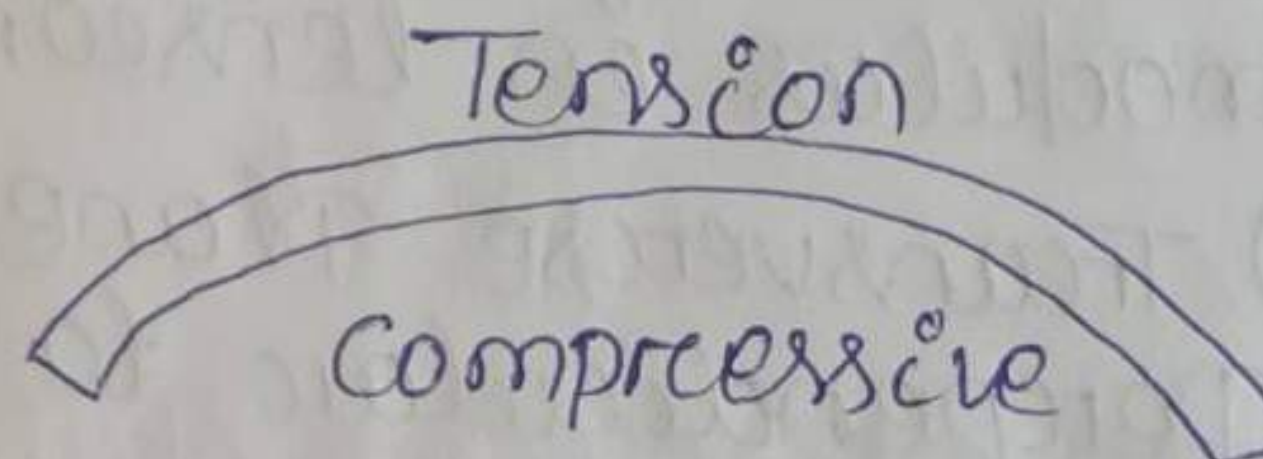 Tension
Compressive